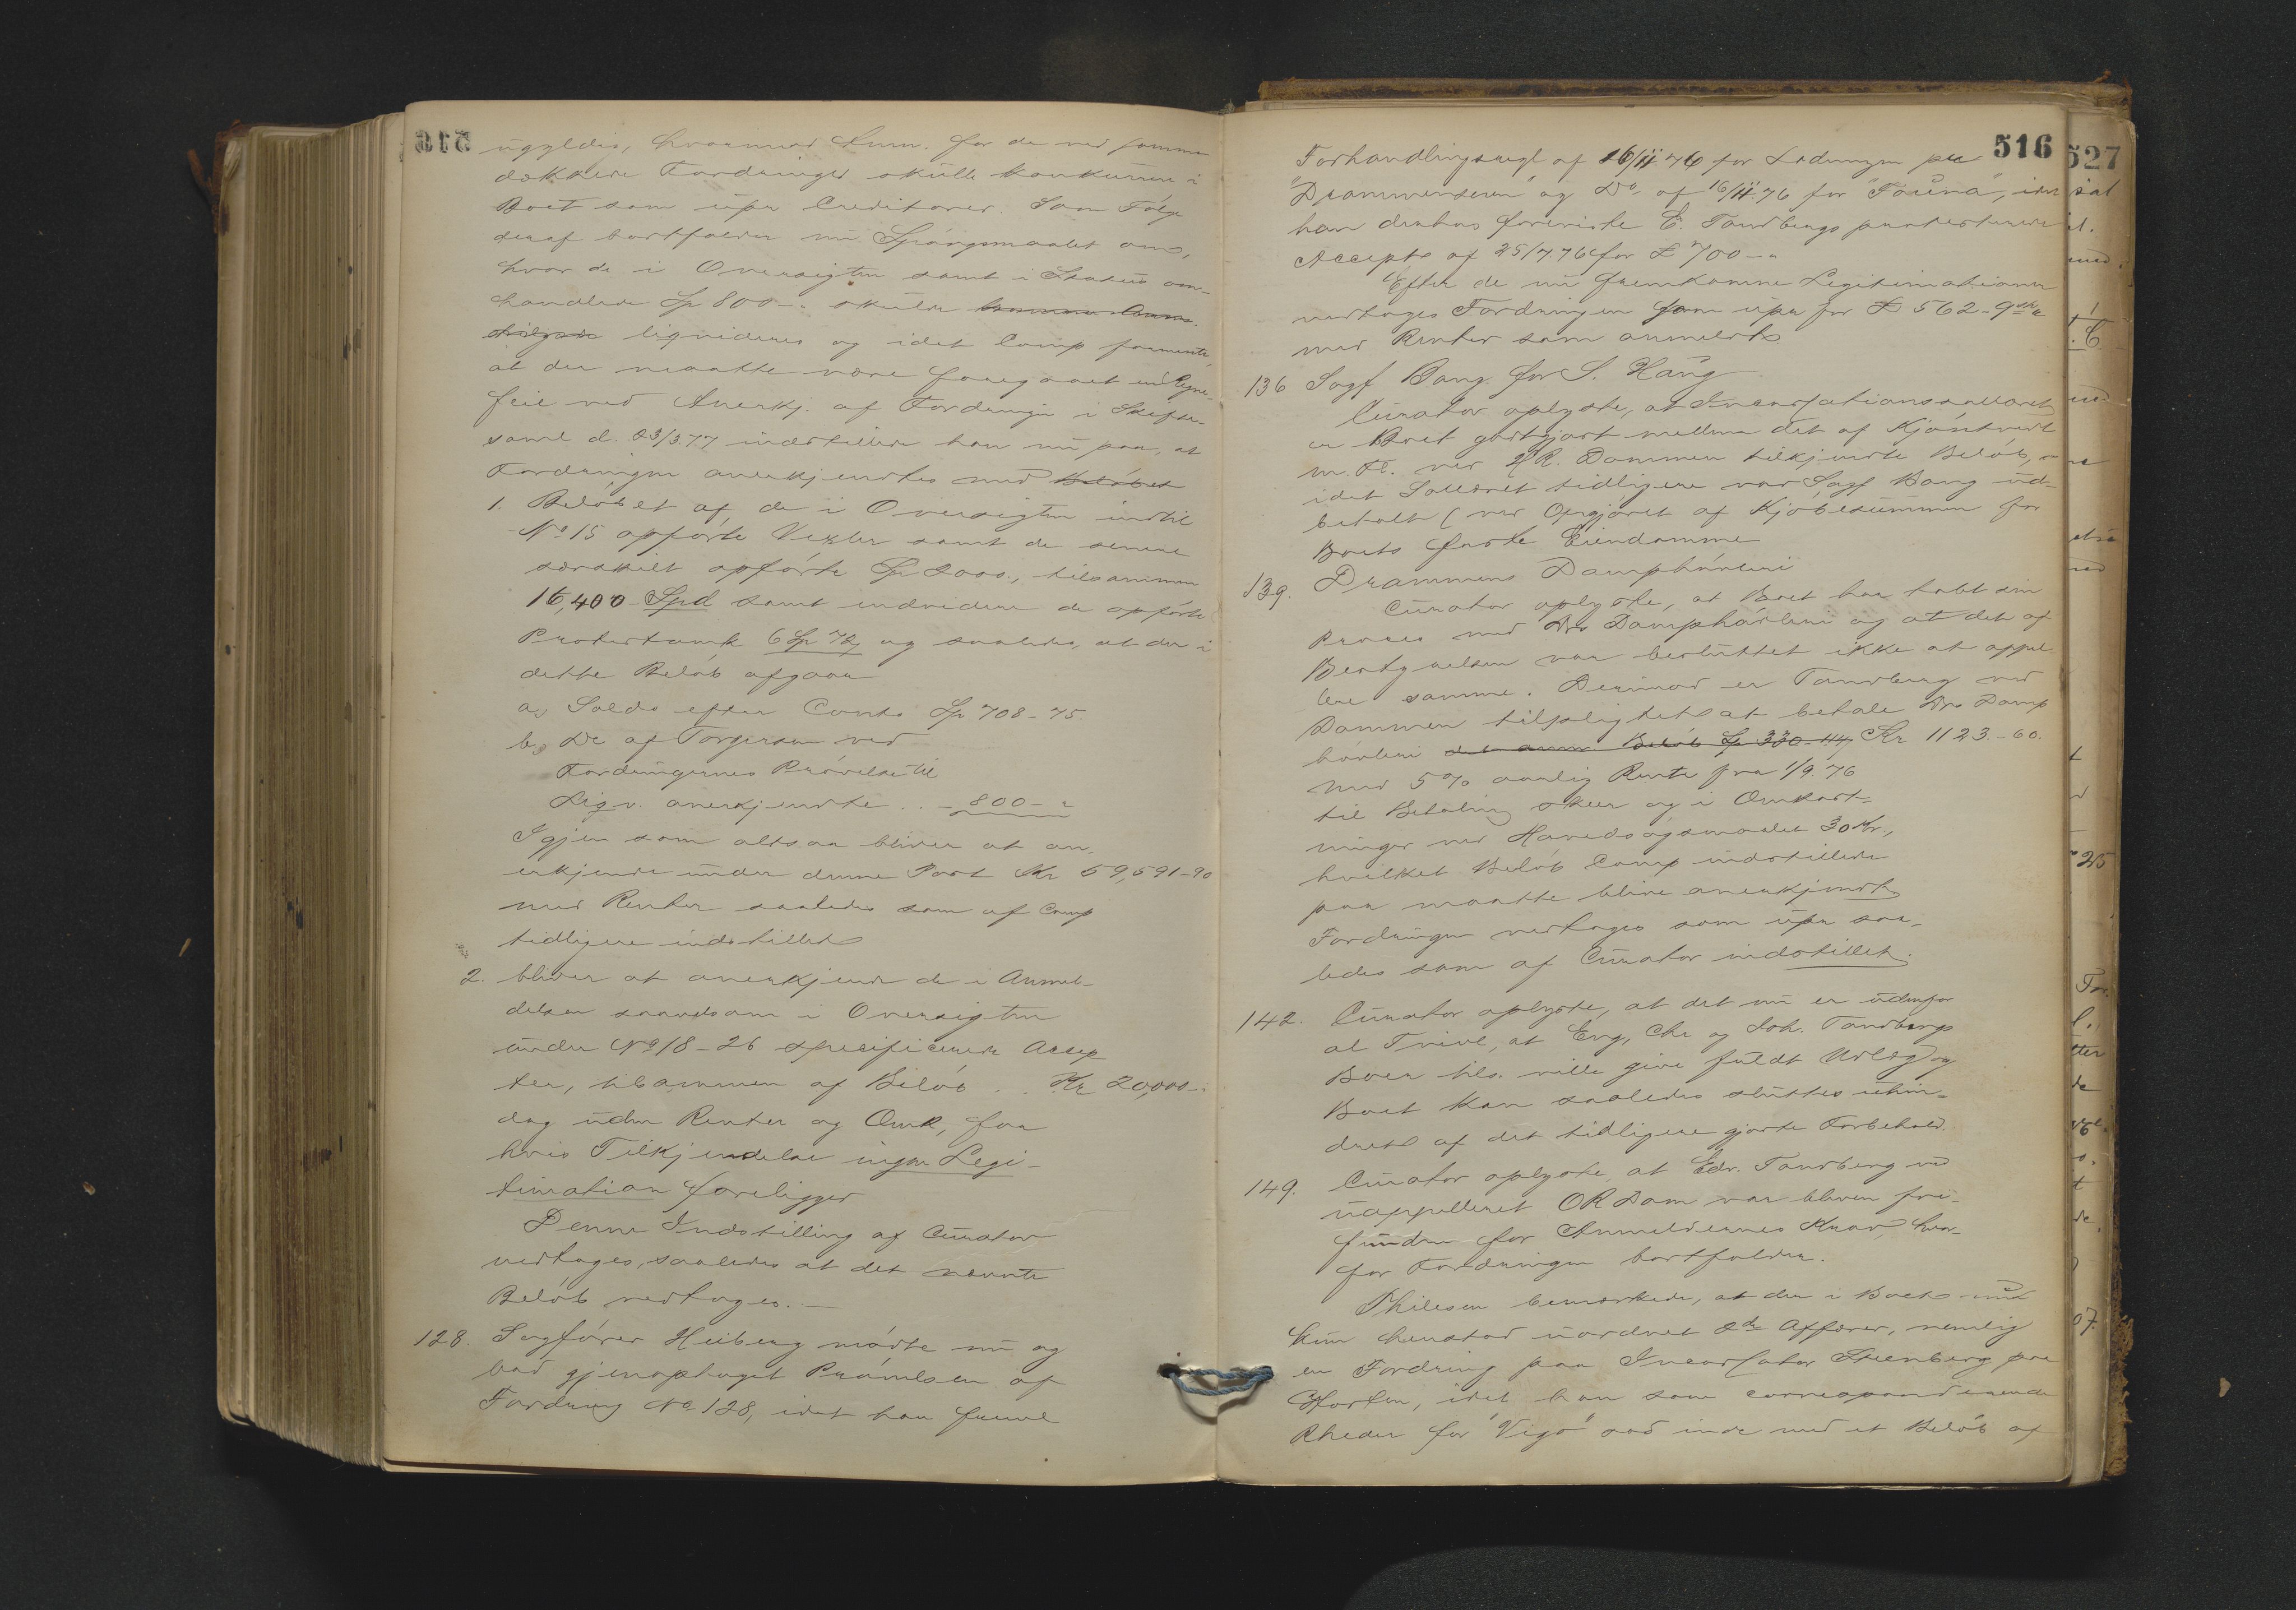 ugyldig, hvorimod Anm. for de ved samme
dækkede Fordringer skulle konkurrere i
Boet som upr Creditorer. Som Følge
deraf bortfalder nu Spørgsmaalet om,
hvor de i Oversigten samt i Status om-
handlede Sp 800 - " skulde
liqvideres og idet Comp formente,
at der maatte være foregaaet en Regne-
feil ved Anerkj. af Fordringen i Skifte-
saml d. 23/3 77 indstillede han nu paa, at
Fordringen anerkjendtes med Beløbet
1. Beløbet af de i Oversigten indtil
No 15 opførte Vexler samt de senere
særskilt opførte Sp 2000., tilsammen
16,400 - Spd samt endvidere de opførte
Protestomk 6 Sp 72 og saaledes, at der i
dette Beløb afgaar
a, Saldo efter Conto Sp 708 - 75.
b, Do af Torgersen ved
Fordringernes Prøvelse til
Liqv. anerkjendte . . - 800 - "
Igjen som altsaa bliver at an-
erkjende under denne Post Kr 59,591-90
med Renter saaledes som af Comp
tidligere indstillet
2. bliver at anerkjende de i Anmel-
delsen saavelsom i Oversigten
under No 18 - 26 specificerede Accep
ter, tilsammen af Beløb . . Kr 20,000 -
dog uden Renter og Omk, for
hvis Tilkjendelse ingen Legi-
timation foreligger
Denne Indstilling af Curator
vedtages, saaledes at det nævnte
Beløb vedtages. -
128. Sagfører Heiberg mødte nu og
bad gjenoptaget Prøvelsen af
Fordring No 128, idet han freml
516
Forhandlingsregl af 16/11 76 for Ladningen pr
"Drammenseren" og Do af 16/11.76 for "Fauna", idet
han derhos foreviste E. Tandbergs protesterede
Accept af 25/7.76 for £ 700 - "
Efter de nu fremkomne Legitimationer
vedtages Fordringen som upr for £ 562 - 9 sh "
med Renter som anmeldt
136 Sagf Bang for S. Haug
Curator oplyste, at Incassationssalæret
er Boet godtgjort mellem det af Kjøntvedt
m. Fl. ved HR. Dommen tilkjendte Beløb,
idet Salæret tidligere var Sagf Bang ud-
betalt (ved Opgjøret af Kjøbesummen for
Boets faste Eiendomme
139. Drammens Damphøvleri
Curator oplyste, at Boet har tabt sin
Proces med Drs Damphøvleri og at det af
Bestyrelsen var besluttet ikke at appel-
lere samme. Derimod er Tandberg ved
Dommen tilpligtet at betale Drs Damp
høvleri Beløb Sp 330 - 44 Kr 1123.-60.
med 5 % aarlig Rente fra 1/9 76
til Betaling skeer og i Omkost-
ninger ved Hovedsøgsmaalet 30 Kr.,
hvilket Beløb Comp indstillede
paa maatte blive anerkjendt
Fordringen vedtages som upr saa-
ledes som af Curator indstillet.
142. Curator oplyste, at det nu er udenfor
al Tvivl, at Eng, Chr og Joh. Tandbergs
Boer hls. ville give fuldt Udlæg og
Boet kan saaledes sluttes uhin-
dret af det tidligere gjorte Forbehold.
149. Curator oplyste at Edv. Tandberg ved
uappelleret OR Dom var bleven fri-
funden for Anmeldernes Krav, hvor-
for Fordringen bortfalder.
Thilesen bemærkede, at der i Boet nu
kun henstod uordnet 2de Affærer, nemlig
en Fordring paa Incassator Steenberg paa
Horten, idet han som corresponderende
Rheder for "Vigo" sad inde med et Beløb af
527